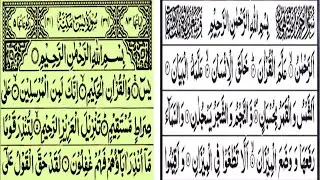 بِسْمِ اللهِ الرَّحْمٰنِ الرَّحِيْمِ
اَلرَّحْمٰنُ ۝ عَلَّمَ الْقُرْاٰنَ ۝ خَلَقَ الْاِنْسَانَ ۝ عَلَّمَهُ الْبَيَانَ ۝
اَلشَّمْسُ وَالْقَمَرُ بِحُسْبَانٍ ۝ وَّالنَّجْمُ وَالشَّجَرُ يَسْجُدٰنِ ۝ وَالسَّمَآءَ
رَفَعَهَا وَوَضَعَ الْمِيْزَانَ ۝ اَلَّا تَطْغَوْا فِي الْمِيْزَانِ ۝ وَاَقِيْمُوا
سُوْرَةُ يٰسٓ مَكِّيَّةٌ
بِسْمِ اللهِ الرَّحْمٰنِ الرَّحِيْمِ ۝
يٰسٓ ۝ وَالْقُرْاٰنِ الْحَكِيْمِ ۝ اِنَّكَ لَمِنَ الْمُرْسَلِيْنَ ۝ عَلٰى
صِرَاطٍ مُّسْتَقِيْمٍ ۝ تَنْزِيْلَ الْعَزِيْزِ الرَّحِيْمِ ۝ لِتُنْذِرَ قَوْمًا
مَّآ اُنْذِرَ اٰبَآؤُهُمْ فَهُمْ غٰفِلُوْنَ ۝ لَقَدْ حَقَّ الْقَوْلُ عَلٰٓى